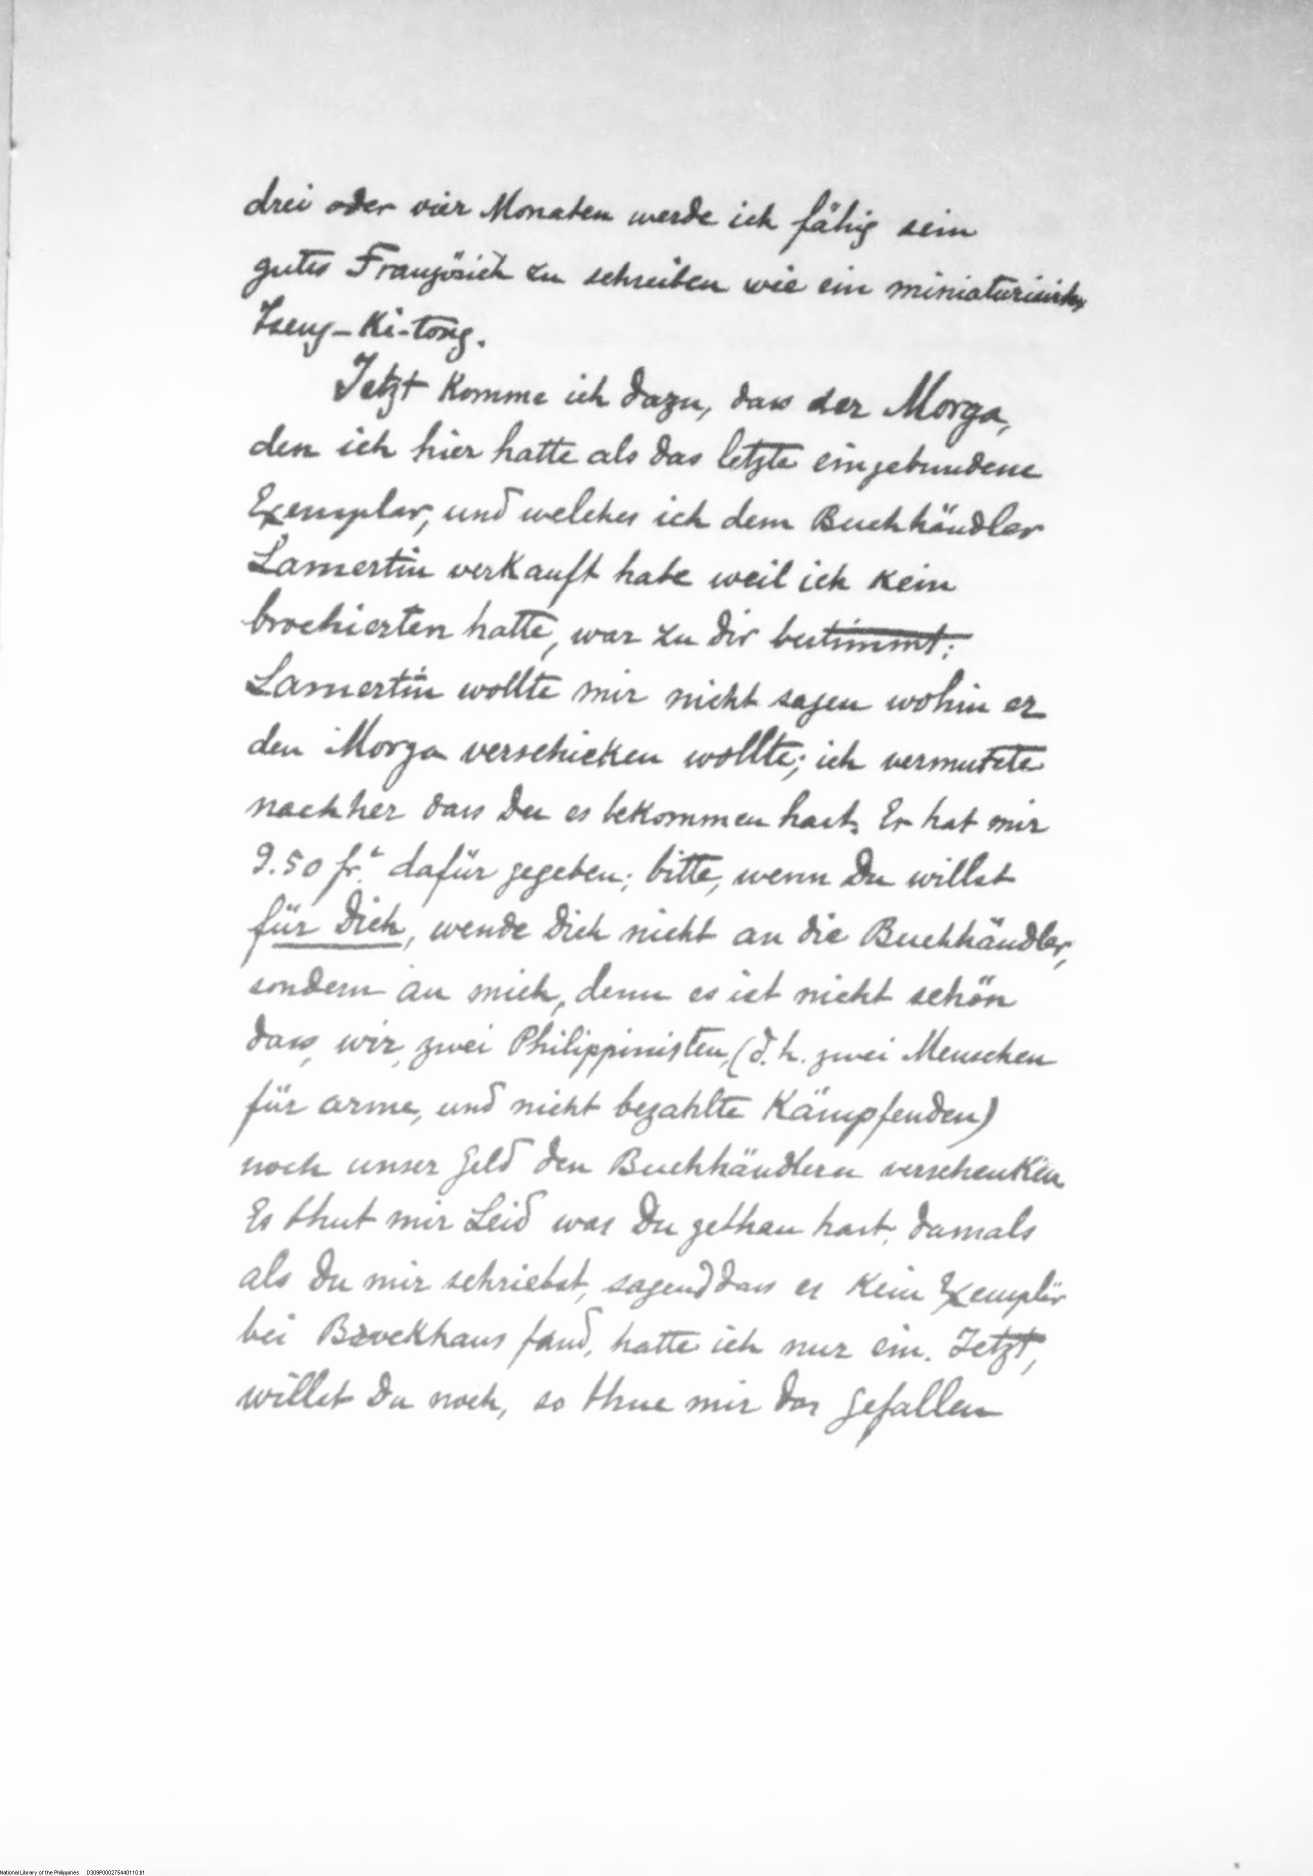 drei oder vier Monaten werde ich fähig sein
gutes Französich zu schreiben wie ein
Tseng-Ki-tong.
Jetzt komme ich dazu, dass der Morga,
den ich hier hatte als das letzte eingebundene
Exemplar, und welches ich dem Buchhändler
Lamertin verkauft habe weil ich kein
brochierten hatte, war zu dir bestimmt;
Lamertin wollte mir nicht sagen wohin er
den Morga verschicken wollte; ich vermutete
nachher dass Du es bekommen hast. Er hat mir
9.50 fr. dafür gegeben; bitte, wenn Du willst
für Dich, wende Dich nicht an die Buchhändler,
sondern an mich, denn es ist nicht schön
dass, wir, zwei Philippinisten, (d.h. zwei Menschen
für arme, und nicht bezahlte Kämpfenden)
noch unser Geld den Buchhändlern verschenken
Es thut mir Leid was Du gethan hast, damals
als Du mir schriebst, sagend dass es kein Exemplär
bei Brockhaus fand, hatte ich nur ein. Jetzt,
willst Du noch, so thue mir das Gefallen
National Library of the Philippines